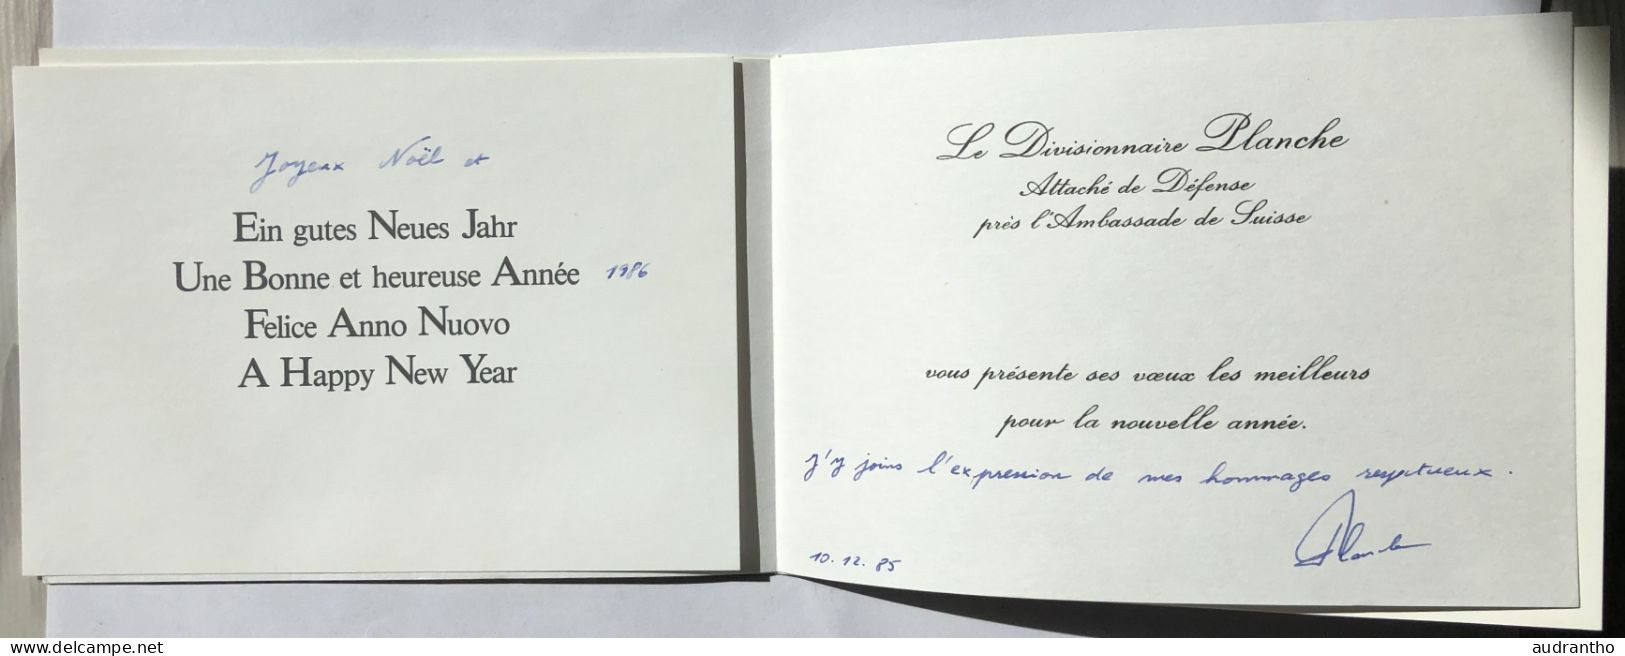 Joyeux Noël et
Ein gutes Neues Jahr
Une Bonne et heureuse Année 1986
Felice Anno Nuovo
A Happy New Year
Le Divisionnaire Planche
Attaché de Défense
près l'Ambassade de Suisse
vous présente ses vœux les meilleurs
pour la nouvelle année.
J'y joins l'expression de mes hommages respectueux.
Planche
10.12.85
www.delcampe.net
audrantho